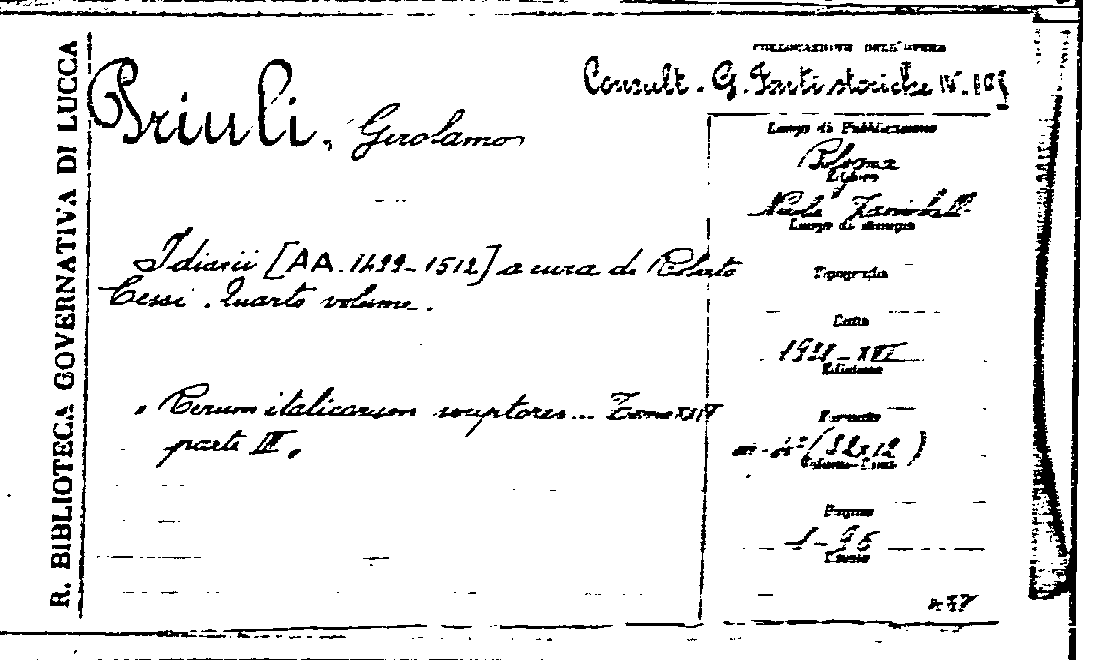 R. BIBLIOTECA GOVERNATIVA DI LUCCA
COLLOCAZIONE DELL'OPERA
Consult. G. Fonti storiche IV.
Priuli, Girolamo
Luogo di Pubblicazione
Bologna
Editore
Nicola Zanichelli
Luogo di stampa
I diarii [AA. 1499-1512] a cura di Roberto
Cessi. Quarto volume.
Tipografia
Data
Edizione
"Rerum italicarum scriptores... Tomo XXIV
parte III"
Formato
in-4° (32x12)
Volume
Pagine
1-96